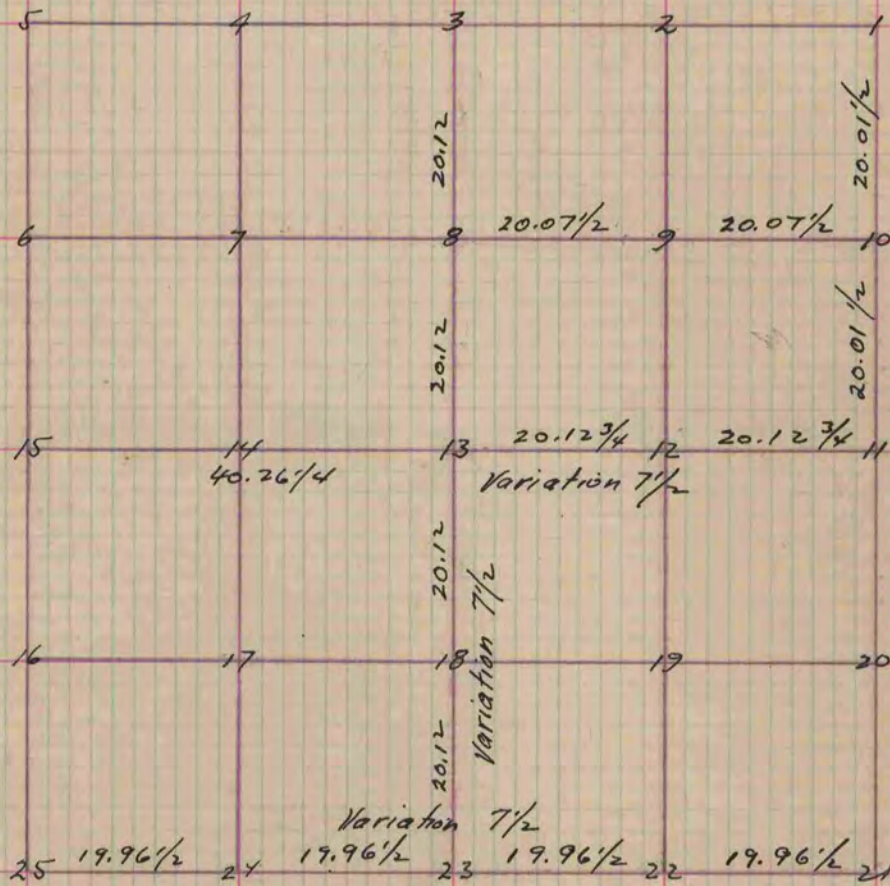 5 4 3 2 1
20.12 20.01 1/2
6 7 8 20.07 1/2 9 20.07 1/2 10
20.12 20.01 1/2
15 14 13 20.12 3/4 12 20.12 3/4 11
40.26 1/4 Variation 7 1/2
20.12
Variation 7 1/2
16 17 18 19 20
20.12
Variation 7 1/2
25 19.96 1/2 24 19.96 1/2 23 19.96 1/2 22 19.96 1/2 21